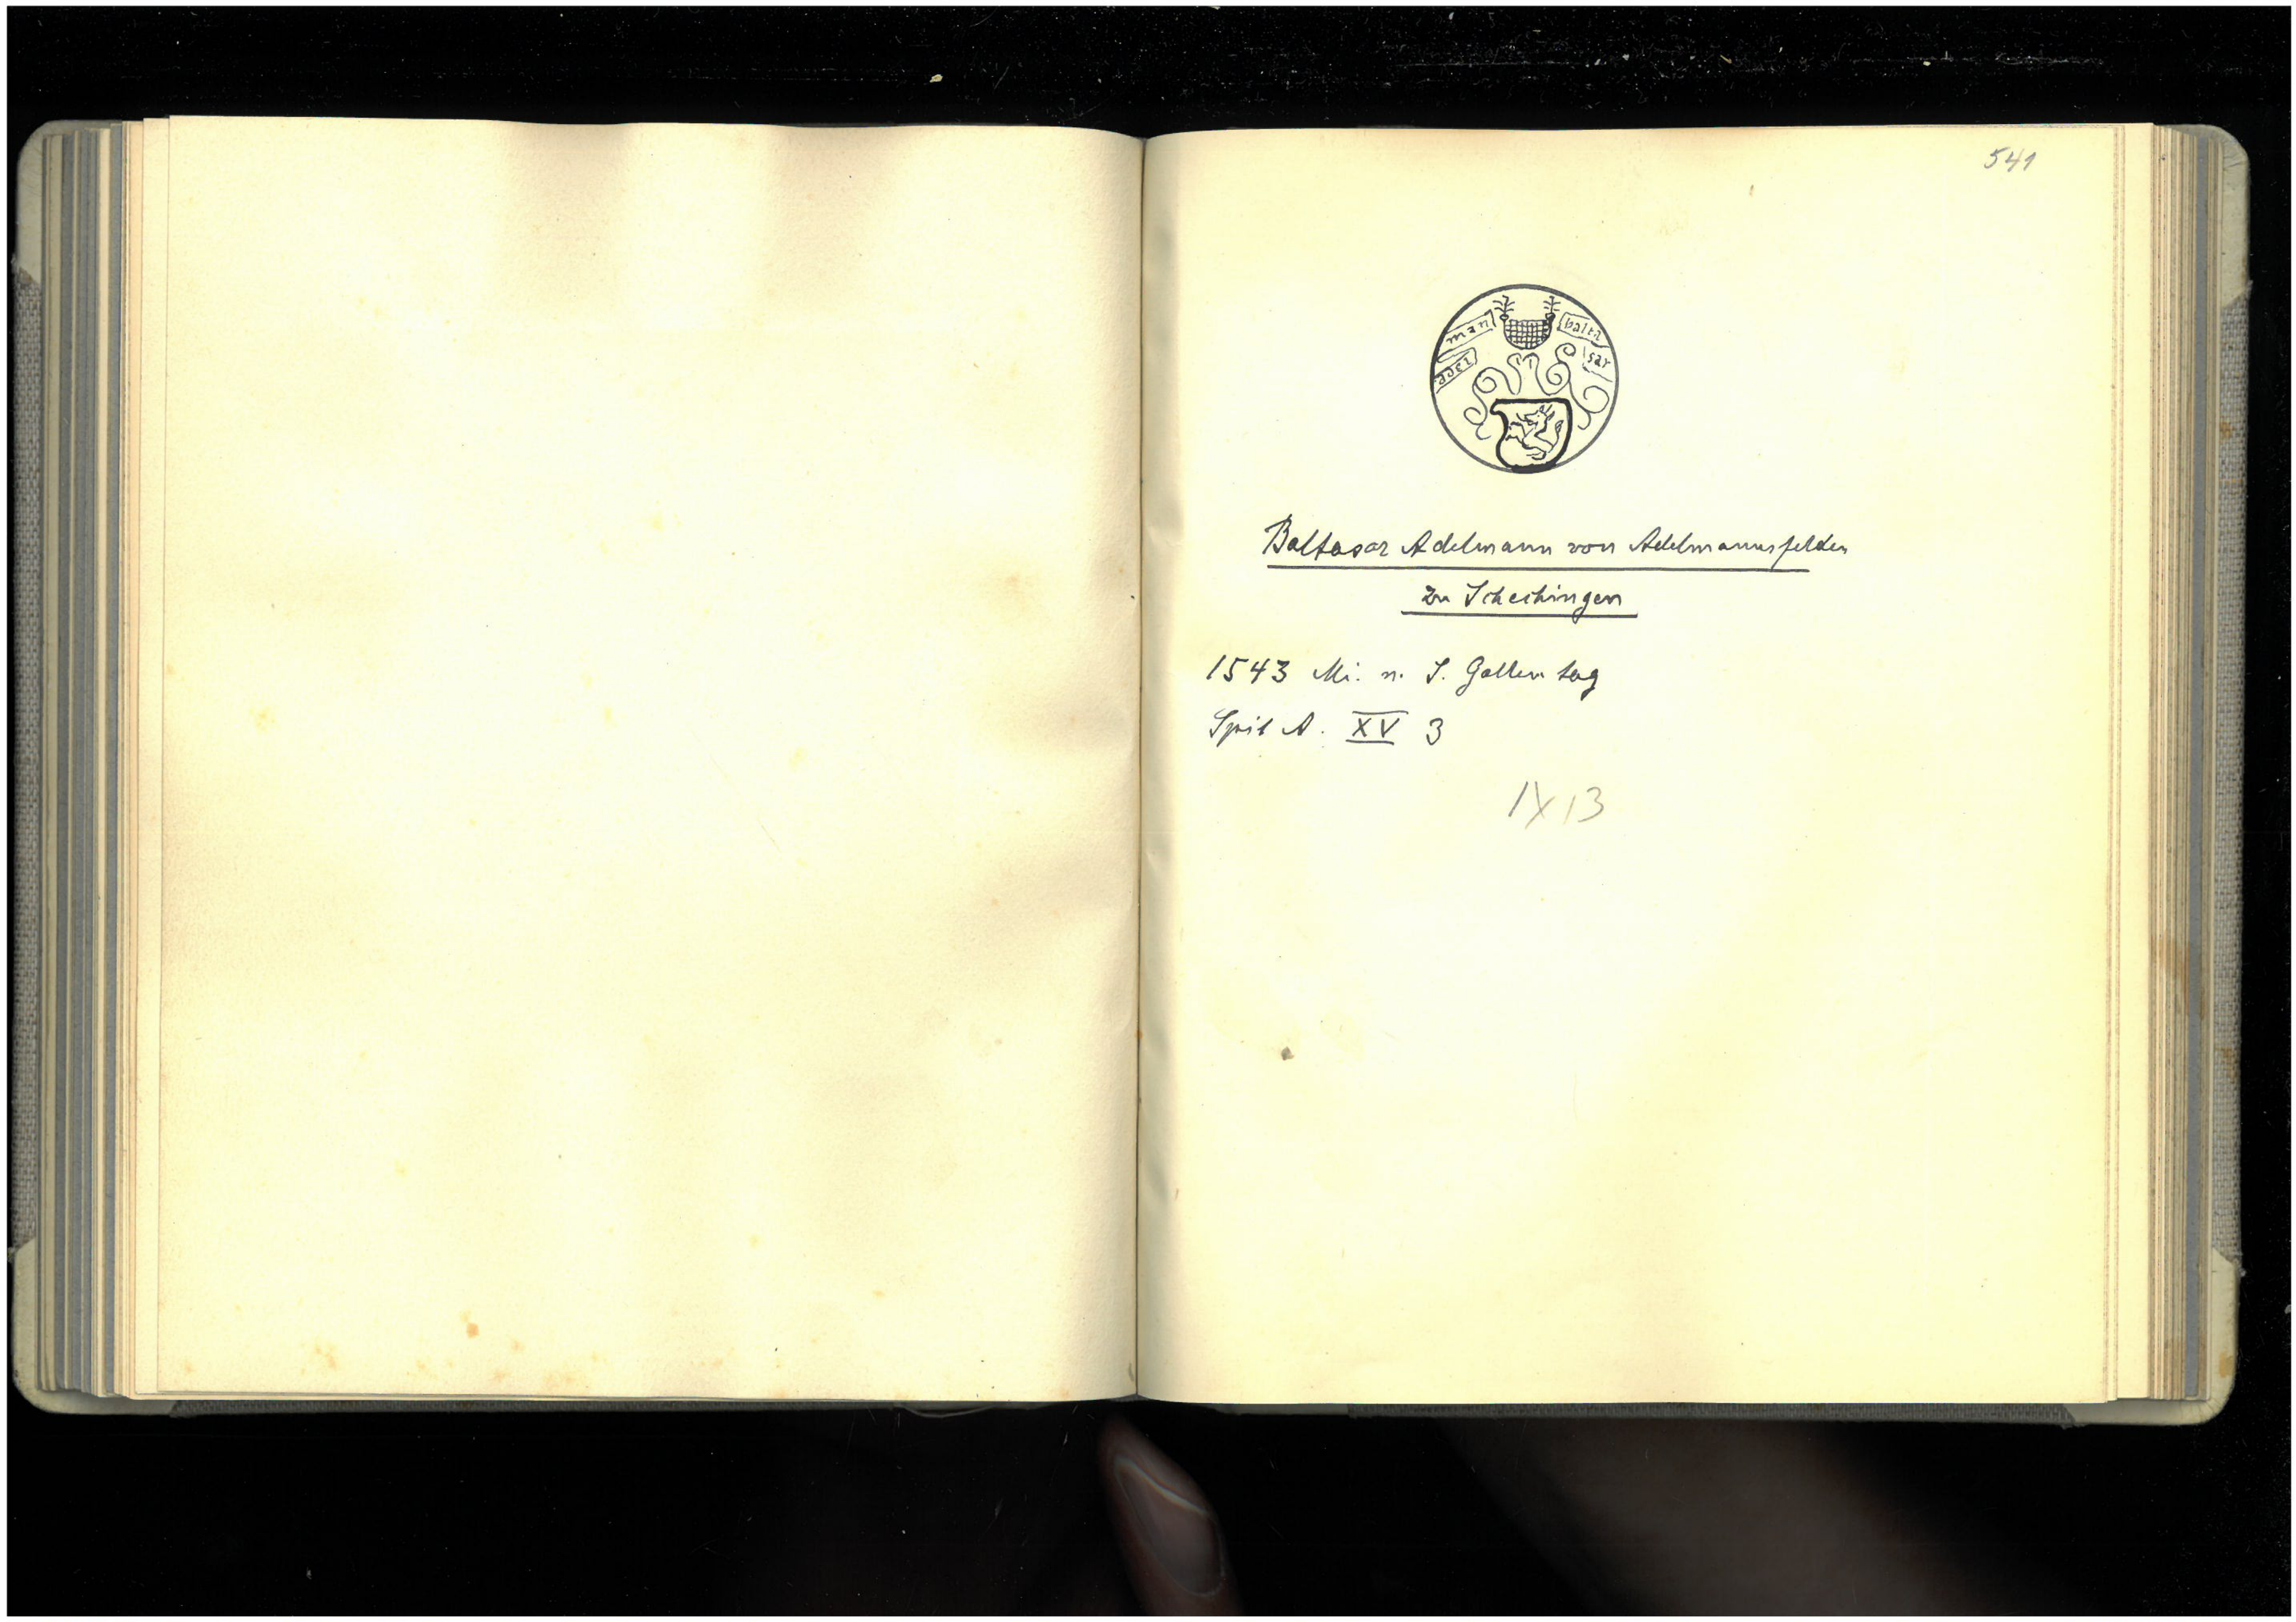 541
balta
sar
adel
man
Baltasar Adelmann von Adelmannsfelden
zu Schechingen
1543 Mi. n. S. Gallentag
Spit A. XV 3
IX 13